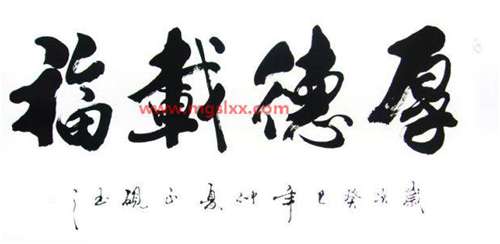 厚德載福
www.mgslxx.com
歲次癸巳年仲夏正硯